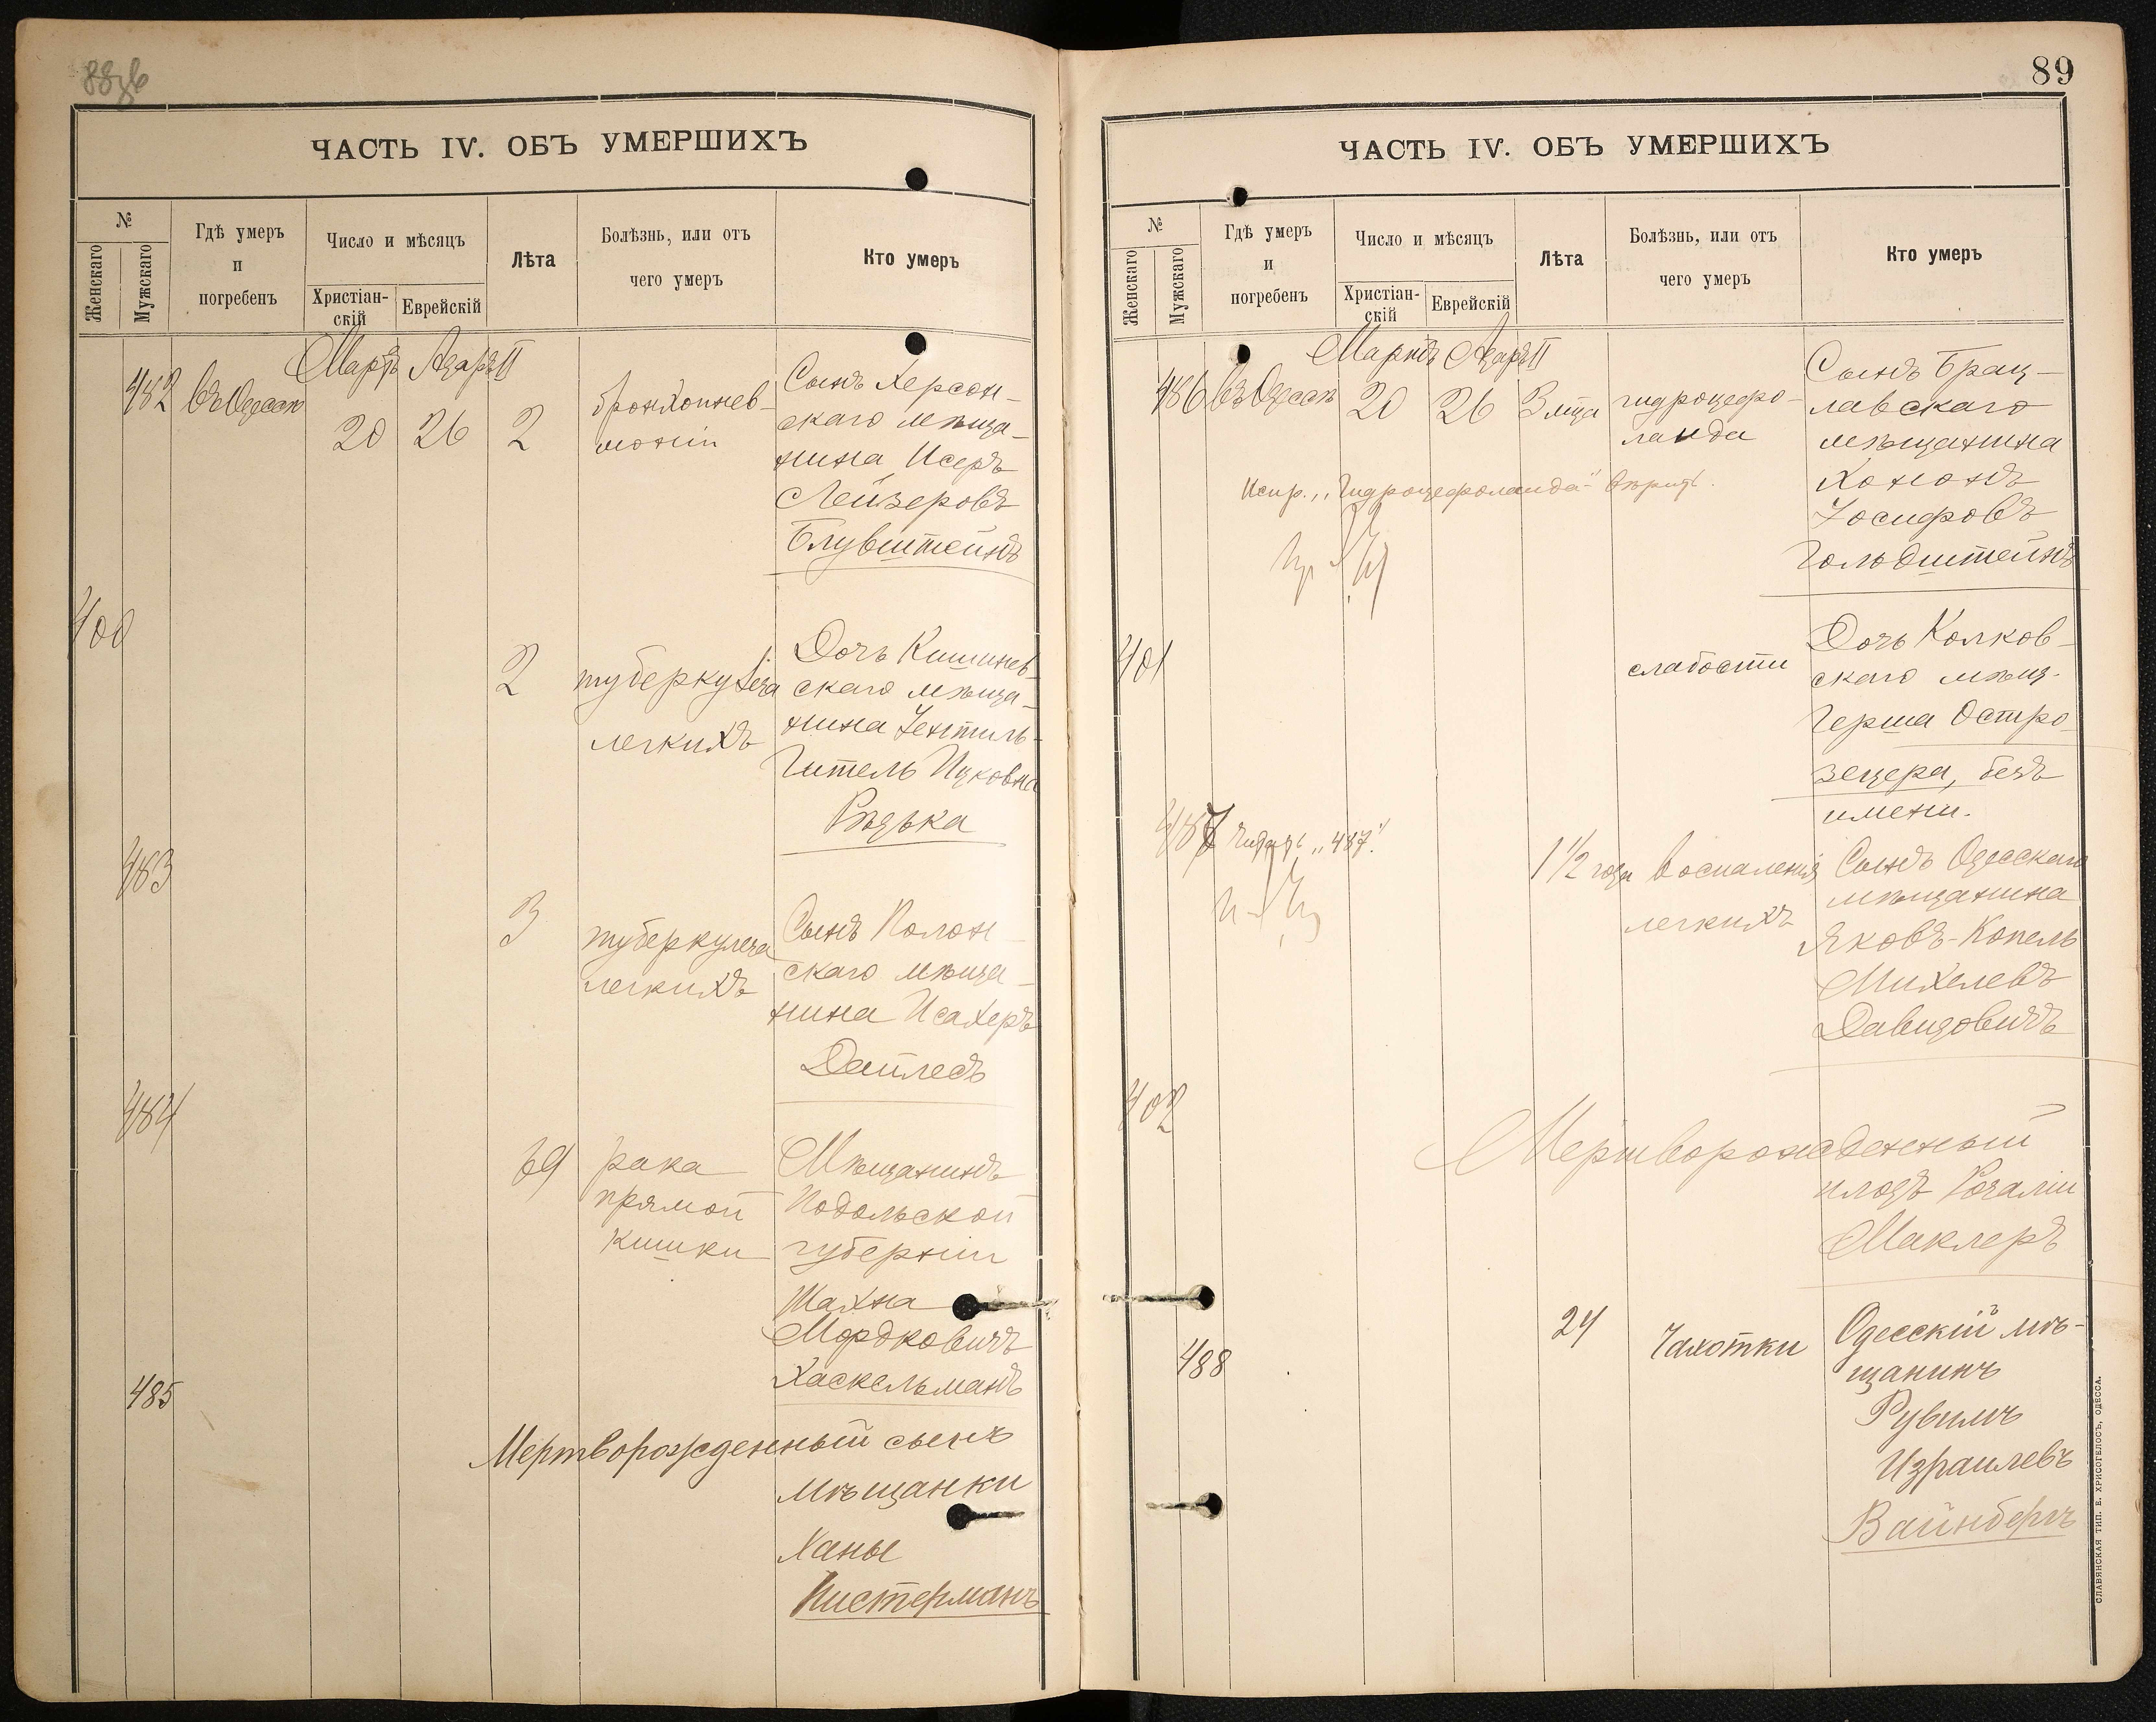 ЧАСТЬ IV. ОБЪ УМЕРШИХЪ
№
Женскаго
Мужскаго
Гдѣ умеръ
и
погребенъ
Число и мѣсяцъ
Христіан-
скій
Еврейскій
Лѣта
Болѣзнь, или отъ
чего умеръ
Кто умеръ
Мартъ Адаръ II
482 въ Одессѣ 20 26 2
бронхопнев-
моніи
Сынъ Херсон-
скаго мѣща-
нина Исеръ
Лейзеровъ
Блувштейнъ
400
2
туберкулеза
легкихъ
Дочь Кишинев-
скаго мѣща-
нина Гентиль-
Гитель Ицковна
483
3
туберкулеза
легкихъ
Сынъ Полон-
скаго мѣща-
нина Исахеръ
484
69
рака
прямой
кишки
Мѣщанинъ
Подольской
губерніи
Шахна
Мордковичъ
Хаскельманъ
485
Мертворожденный сынъ
мѣщанки
Ханы
Пистерманъ
89
ЧАСТЬ IV. ОБЪ УМЕРШИХЪ
№
Женскаго
Мужскаго
Гдѣ умеръ
и
погребенъ
Число и мѣсяцъ
Христіан-
скій
Еврейскій
Лѣта
Болѣзнь, или отъ
чего умеръ
Кто умеръ
Мартъ Адаръ II
486 въ Одессѣ 20 26 3 мца
гидроцефо-
лаида
Сынъ Брац-
лавскаго
мѣщанина
Хононъ
Іосифовъ
Гольдштейнъ
Испр. „Гидроцефолаида"
401
слабости
Дочь Колков-
скаго мѣщ.
Герша Остро-
зецера, безъ
имени.
487 „487"
1 1/2 года
воспаленія
легкихъ
Сынъ Одесскаго
мѣщанина
Яковъ-Копель
Михелевъ
Давидовичъ
402
Мертворожденный
плодъ Розаліи
Маклеръ
488
24
Чахотки
Одесскій мѣ-
щанинъ
Рувимъ
Израилевъ
Вайнбергъ
СЛАВЯНСКАЯ ТИП. Е. ХРИСОГЕЛОСЪ, ОДЕССА.